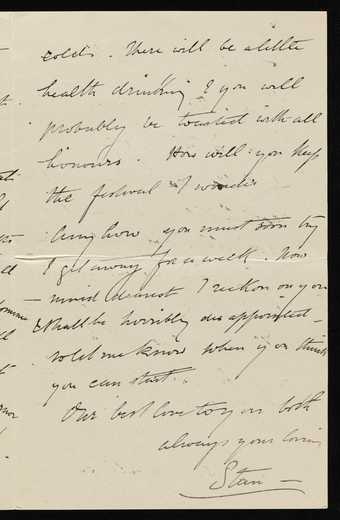 colds. There will be a little
health drinking & you will
probably be toasted with all
honours. How will you keep
the festival I wonder
Anyhow you must soon try
& get away for a week. Now
— mind dearest I reckon on you
& shall be horribly disappointed —
so let me know when you think
you can start.
Our best love to you both
always your loving
Stan —